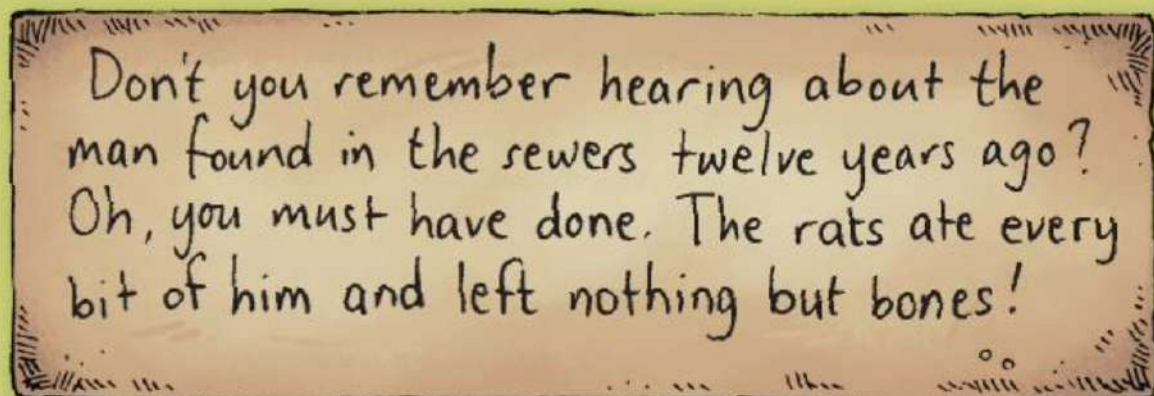 Don't you remember hearing about the
man found in the sewers twelve years ago?
Oh, you must have done. The rats ate every
bit of him and left nothing but bones!